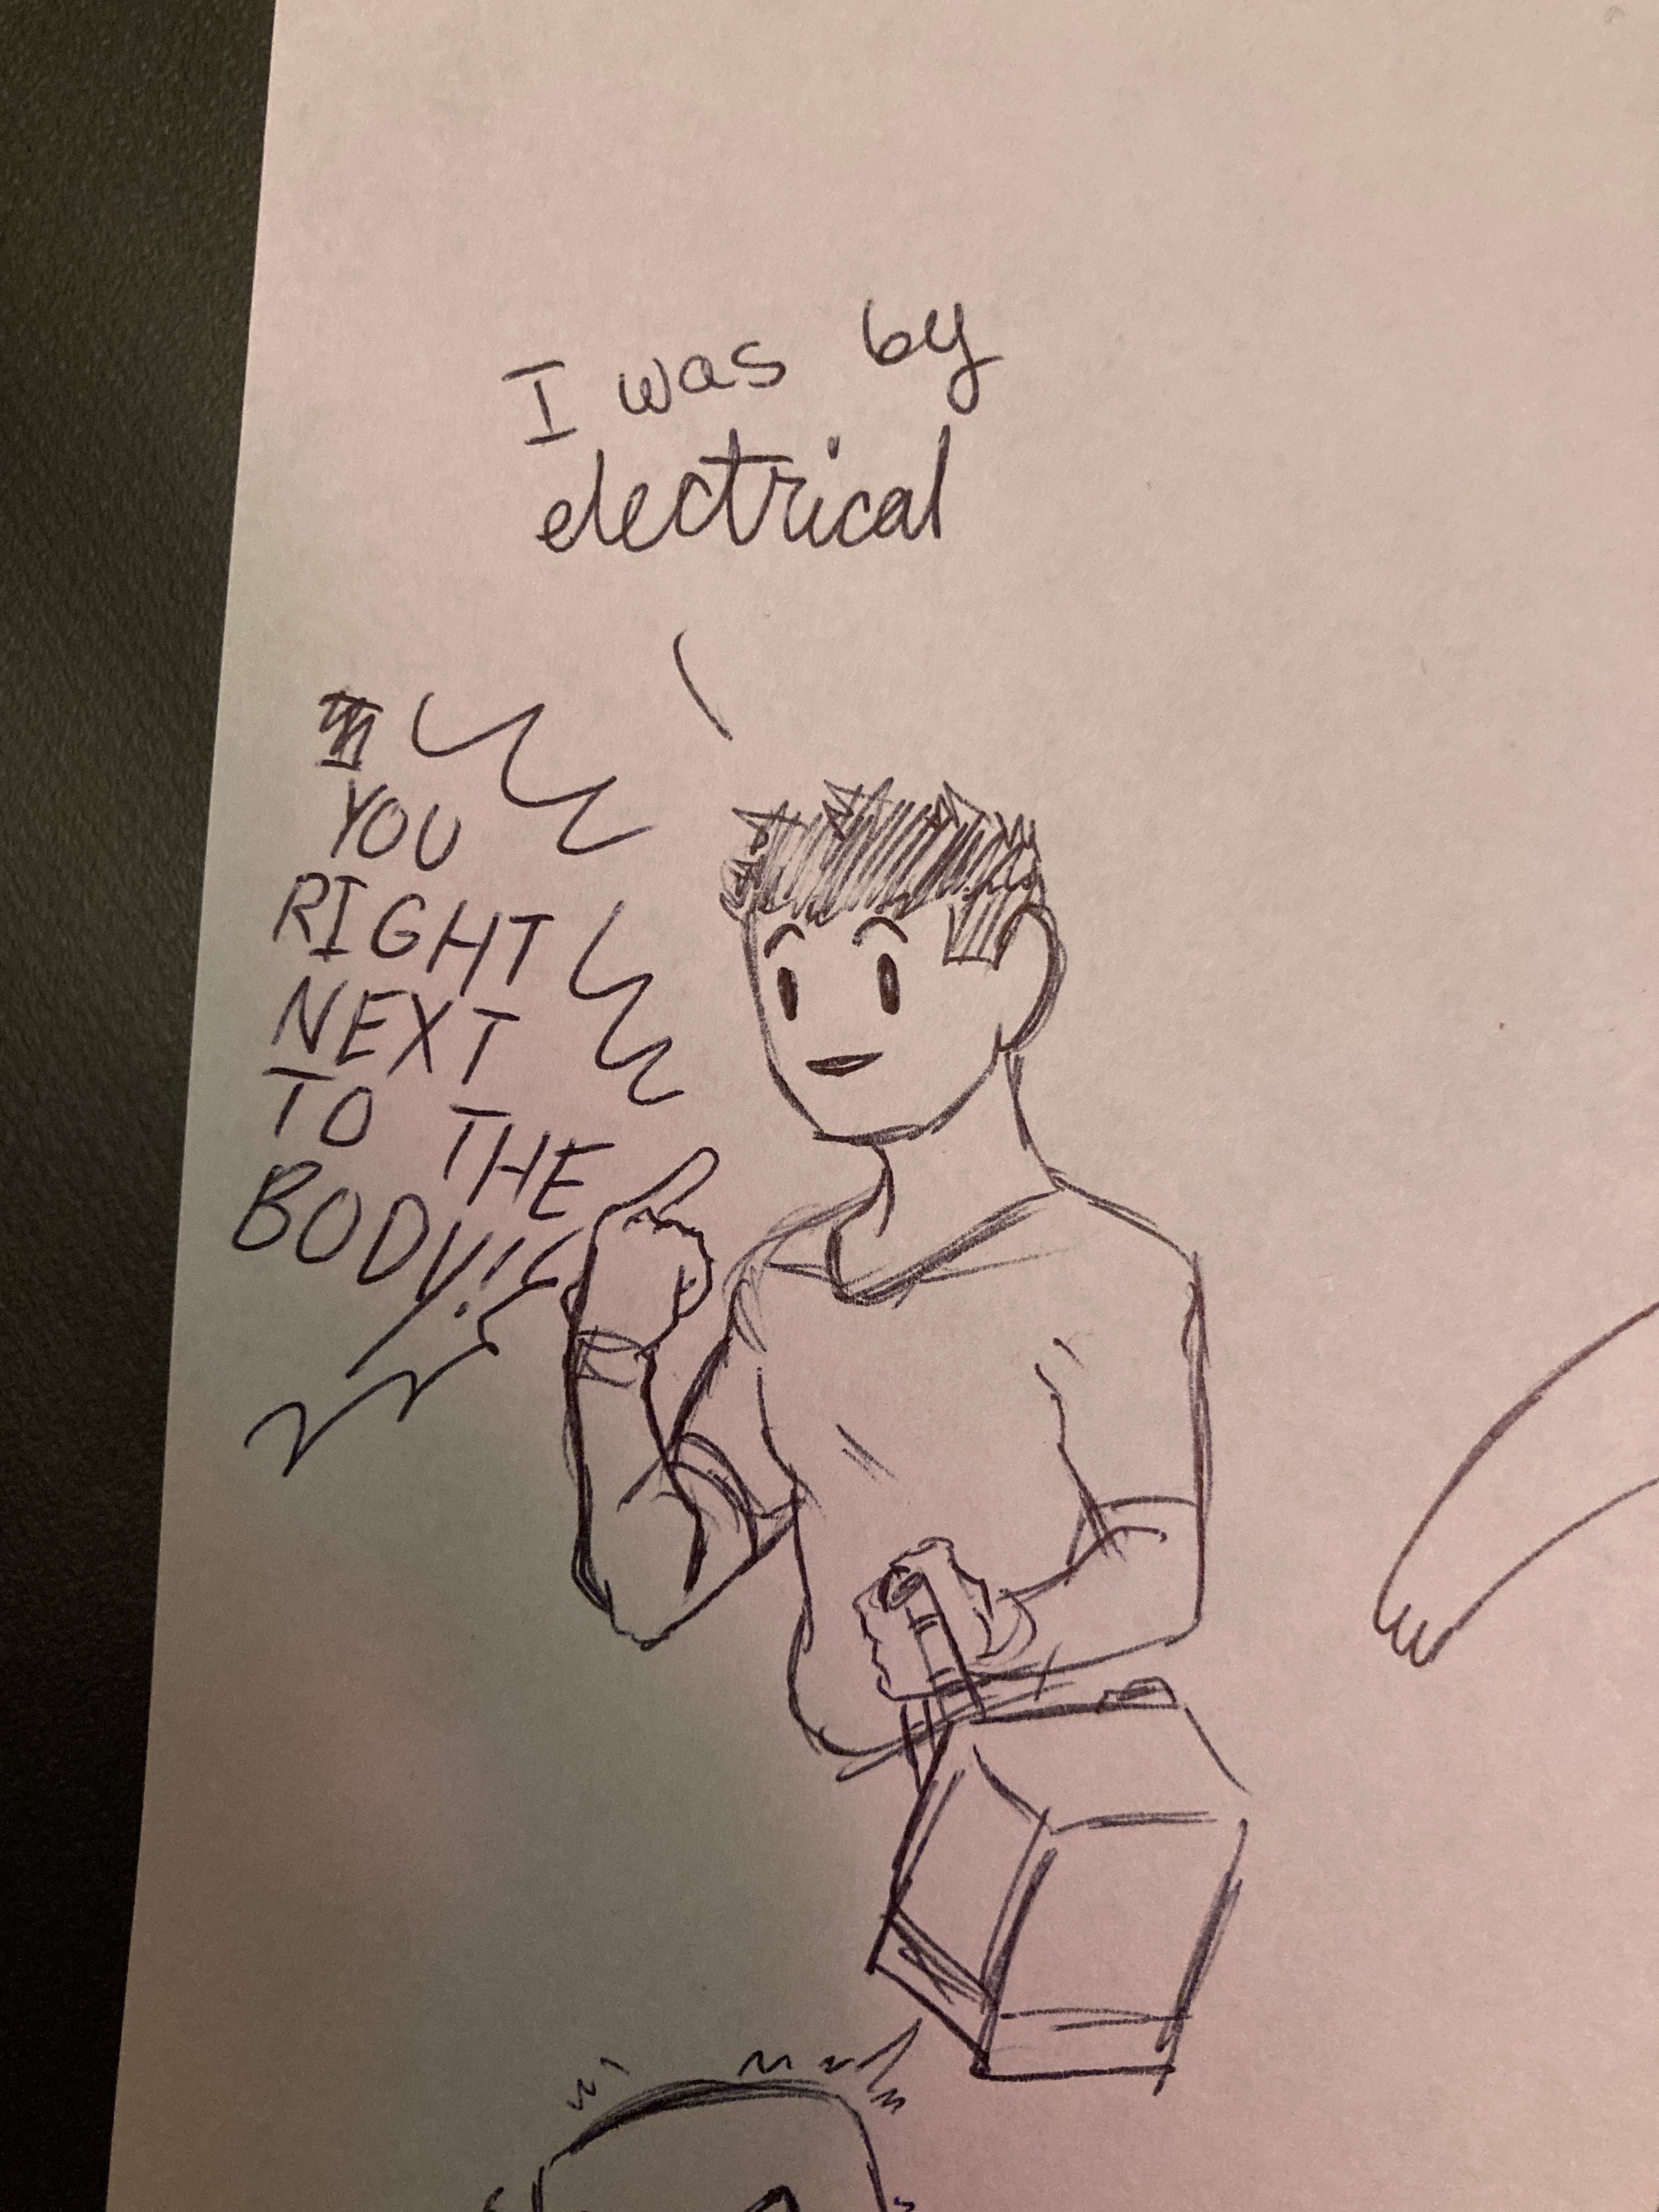 I was by
electrical
YOU
RIGHT
NEXT
TO THE
BODY!